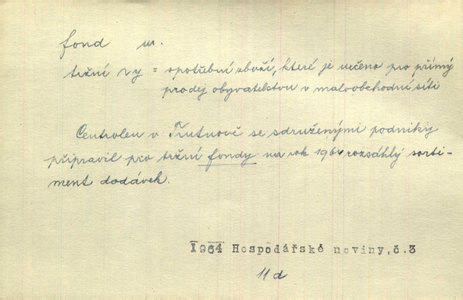 fond m.
tržní ~y = spotřební zboží, které je určeno pro přímý
prodej obyvatelstvu v maloobchodní síti
Centrolen v Trutnově se sdruženými podniky
připravil pro tržní fondy na rok 1964 rozsáhlý sorti-
ment dodávek.
1964 Hospodářské noviny, č.3
11d